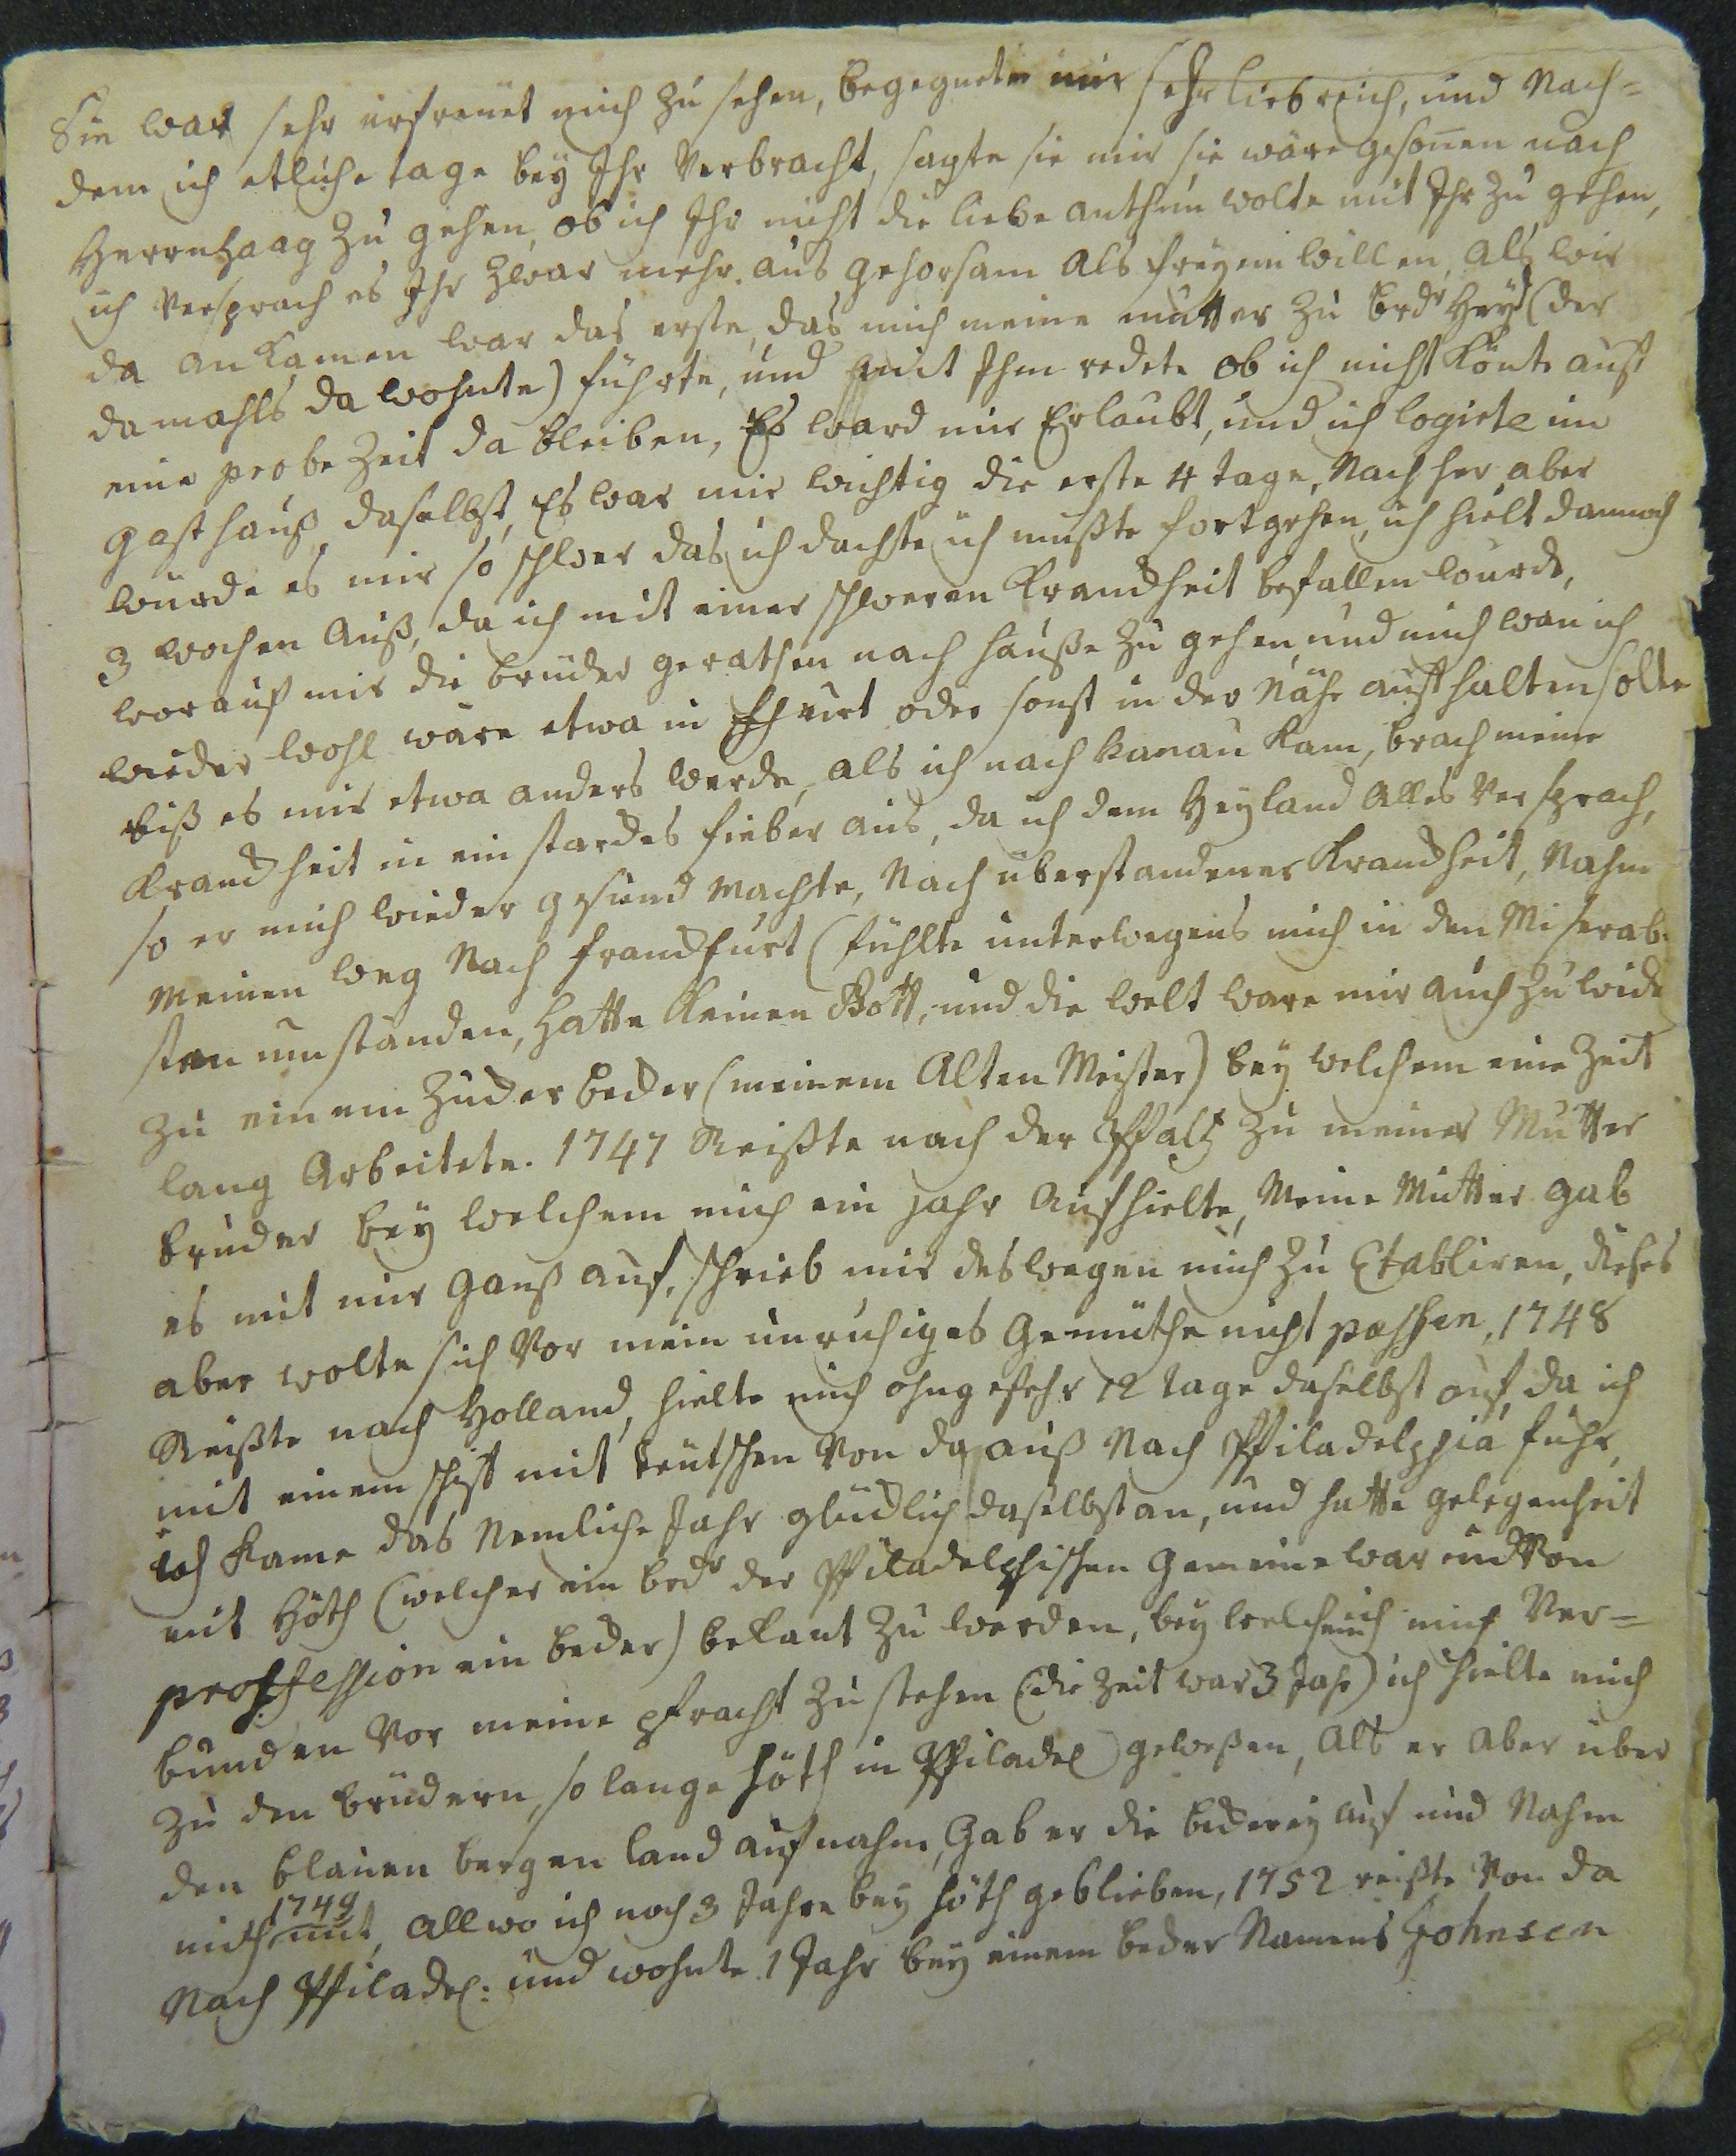 Sie war sehr erfreuet mich zu sehen, begegnete mir sehr liebreich, und Nach=
dem ich etliche tage bey Ihr Verbracht, sagte sie mir sie wäre gesonen nach
Herrnhaag zu gehen, ob ich Ihr nicht die liebe anthun wolte mit Ihr zu gehen,
ich Versprach es Ihr zwar mehr aus gehorsam als freyem willen, als wir
da ankamen war das erste, das mich meine mutter zu brdr Heyd (der
damahls da wohnte) führte, und mit Ihm redete ob ich nicht könte auf
eine probe Zeit da bleiben, Es ward mir Erlaubt, und ich logirte im
gasthauß daselbst, Es war mir wichtig die erste 4 tage, Nach her aber
wurde es mir so schwer das ich dachte ich müßte fortgehen, ich hielt dennoch
3 wochen auß, da ich mit einer schweren Kranckheit befallen wurde,
worauf mir die brüder gerathen nach hauße zu gehen, und mich wan ich
wieder wohl wäre etwa in oder sonst in der Nähe aufhalten solte
biß es mir etwa anders werde, als ich nach hanau kam, brach meine
Kranckheit in ein starckes fieber aus, da ich dem Heyland alles Versprach,
so er mich wieder gesund machte, Nach überstandener Kranckheit, Nahm
meinen weg Nach franckfurt (fühlte unterwegens mich in den Miserab=
sten umständen, hatte keinen Gott, und die welt ware mir auch zu wide
zu einem Zuckerbecker (meinem Alten Meister) bey welchem eine Zeit
lang Arbeitete. 1747 Reißte nach der Pfaltz zu meiner Mutter
bruder bey welchem mich ein jahr Aufhielte, Meine Mutter gab
es mit mir gantz auf, schrieb mir deswegen mich zu Etabliren, dieses
aber wolte sich Vor mein unruhiges Gemüthe nicht passen, 1748
Reißte nach Holland, hielte mich ohngefehr 12 tage daselbst auf, da ich
mit einem schiff mit teutschen Von da auß Nach Philadelphia fuhr,
ich kame das Nemliche Jahr glücklich daselbst an, und hatte gelegenheit
mit Höth (welcher ein brdr der Philadelphischen Gemeine war und Von
proffession ein becker) bekant zu werden, bey welchem ich mich Ver=
bunden Vor meine pfracht zu stehen (die Zeit war 3 Jahr) ich hielte mich
zu den brüdern, so lange Höth in Philadel gewesen, Als er aber über
den blauen bergen land aufnahm, Gab er die beckerey auf und Nahm
1749
mich mit, allwo ich noch 3 Jahre bey Höth geblieben, 1752 reißte Von da
Nach Philadel: und wohnte 1 Jahr bey einem becker Namens Johnsen